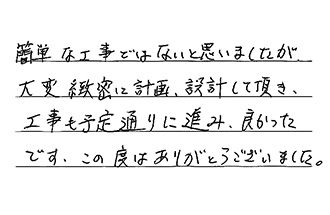 簡単な工事ではないと思いましたが、
大変緻密に計画、設計して頂き、
工事も予定通りに進み、良かった
です。この度はありがとうございました。